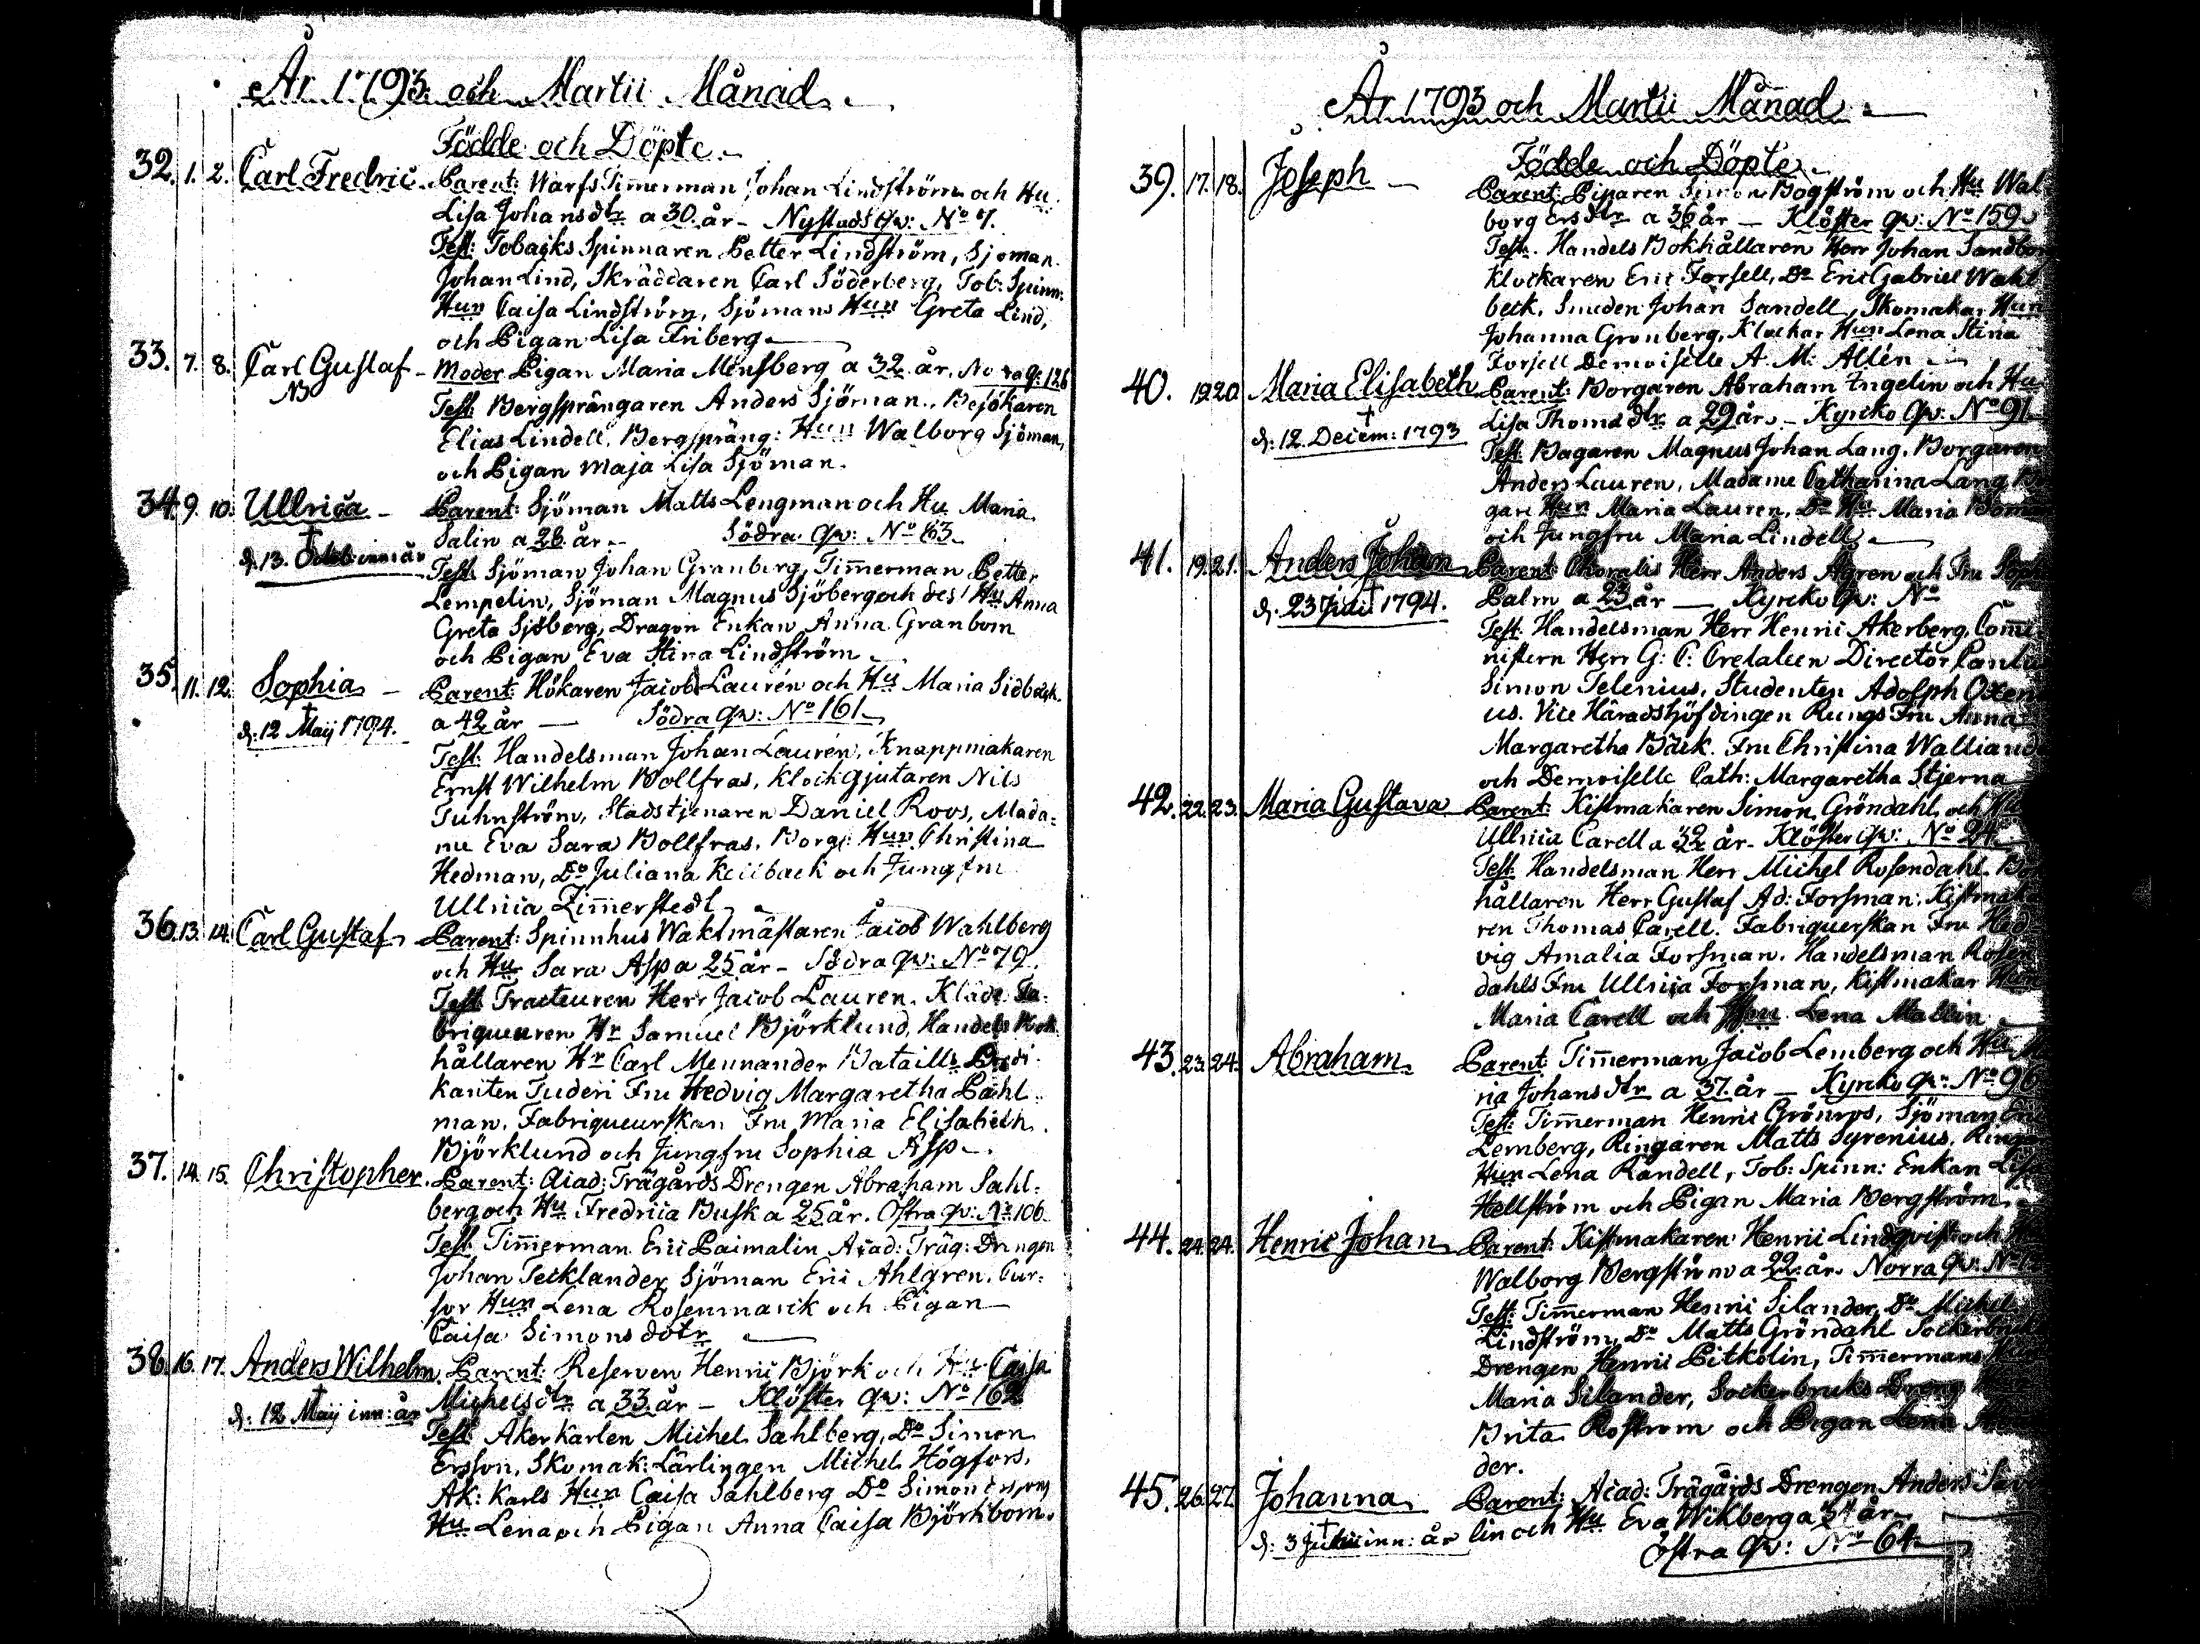 År 1793 och Martii Månad
Födde och Döpte
32. 1. 2. Carl Fredric. Parent: Warfs Timmerman Johan Lindström och Hu
Lisa Johansdtr a 30. år - Nystads qv: No 7.
Test: Tobacks Spinnaren Petter Lindström, Sjöman
Johan Lind, Skräddaren Carl Söderberg, Tob: Spinn:
Hun Caisa Lindström, Sjömans Hun Greta Lind,
och Pigan Lisa Friberg
33. 7. 8. Carl Gustaf - Moder Pigan Maria Mensberg a 32 år. Norra q: 126
NB Test: Bergsprängaren Anders Sjöman, Besökaren
Elias Lindell, Bergspräng: Hun Walborg Sjöman,
och Pigan Maja Lisa Sjöman.
34. 9. 10. Ullrica - Parent: Sjöman Matts Lengman och Hu Maria
Salin a 26 år - Södra qv: No 63
d. 13. Octob: inn: år
Test: Sjöman Johan Granberg, Timmerman Petter
Lempelin, Sjöman Magnus Sjöberg och des Hu Anna
Greta Sjöberg, Dragon Enkan Anna Granbom
och Pigan Eva Stina Lindström
35. 11. 12. Sophia - Parent: Hökaren Jacob Laurén och Hu Maria
a 42 år - Södra qv: No 161
d: 12 Maij 1794.
Test: Handelsman Johan Laurén, Knappmakaren
Ernst Wilhelm Bollfras, Klockgjutaren Nils
Tuhnström, Stadstjenaren Daniel Roos, Mada-
me Eva Sara Bollfras, Borg: Hun Christina
Hedman, Do Juliana och Jungfru
Ullrica Zimmerstedt
36. 13. 14. Carl Gustaf Parent: Spinnhus Waktmästaren Jacob Wahlberg
och Hu Sara Asp a 25 år - Södra qv: No 79.
Test: Tracteuren Herr Jacob Lauren, Kläde Fa-
briqueuren Hr Samuel Björklund, Handels Bok-
hållaren Hr Carl Mennander Bataills Predi-
kanten Tuderi Fru Hedvig Margaretha Pahl-
man, Fabriqueurskan Fru Maria Elisabeth
Björklund och Jungfru Sophia Asp
37. 14. 15. Christopher. Parent: Acad: Trägårds Drengen Abraham Sahl-
berg och Hu Fredrica Busk a 25 år. Östra qv: No 106
Test: Timmerman Eric Paimalin Acad: Träg: Drengen
Johan Tecklander Sjöman Eric Ahlgren, Cur-
sor Hun Lena Rosenmarck och Pigan
Caisa Simonsdotr
38. 16. 17. Anders Wilhelm. Parent: Reserven Henric Björk och Hu Caisa
Michelsdtr a 33 år - Klöster qv: No 162
d: 12 Maij inn: år
Test: Åkerkarlen Michel Sahlberg, Do Simon
Ersson, Skomak: Lärlingen Michel Högfors,
Åk: Karls Hun Caisa Sahlberg Do Simon Erssons
Hu Lena och Pigan Anna Caisa Björkbom.
År 1793 och Martii Månad
Födde och Döpte
39. 17. 18. Joseph - Parent: Simon Bogström och Hu Wal-
borg Ersdtr a 36 år - Klöster qv: No 159
Test: Handels Bokhållaren Herr Johan
Klockaren Eric Forsell, Do Eric Gabriel Wahl-
beck, Smeden Johan Sandell, Skomakar Hun
Johanna Gronberg, Klockar Hun Lena Stina
Forsell Demoiselle A. M. Allén
40. 19 20 Maria Elisabeth Parent: Borgaren Abraham Ingelin och Hu
Lisa Thomasdtr a 29 år - Kyrcko qv: No 91
d: 12. Decem: 1793
Test: Bagaren Magnus Johan Lang, Borgaren
Anders Lauren, Madame Catharina Lang
gare Hun Maria Lauren, Do Hu Maria
och Jungfru Maria Lindell
41. 19. 21. Anders Johan Parent: Choralis Herr Anders Ågren och Fru
Palm a 23 år - Kyrcko qv: No
d. 23 1794.
Test: Handelsman Herr Henric Åkerberg,
Herr G: C: Director
Simon Telenius, Studenten Adolph
us. Vice Häradshöfdingen Rungs Fru Anna
Margaretha Bäck. Fru Christina
och Demoiselle Cath: Margaretha Stjerna
42. 22. 23. Maria Gustava Parent: Kistmakaren Simon Gröndahl och Hu
Ullrica Carell a 32 år - Klöster qv: No 24
Test: Handelsman Herr Michel Rosendahl,
hållaren Herr Gustaf Ad: Forsman, Kistmaka-
ren Thomas Carell. Fabriquerskan Fru Hed-
vig Amalia Forsman, Handelsman Rosen-
dahls Fru Ullrica Forsman, Kistmakar Hun
Maria Carell och Lena Mallin
43. 23. 24. Abraham. Parent: Timmerman Jacob Lemberg och Hu Ma-
ria Johansdtr a 37. år - Kyrcko qv: No 96
Test: Timmerman Henric Grönros, Sjöman
Lemberg, Ringaren Matts Syrenius,
Hun Lena Randell, Tob: Spinn: Enkan Lisa
Hellström och Pigan Maria Bergström
44. 24. 24. Henric Johan Parent: Kistmakaren Henric Lindqvist och Hu
Walborg Bergström a 22 år. Norra qv:
Test: Timmerman Henric Silander, Do Michel
Lindström, Do Matts Gröndahl
Drengen Henric Pitkolin, Timmermans
Maria Silander, Sockerbruks Dreng
Brita Roström och Pigan Lena
der.
45. 26. 27. Johanna Parent: Acad: Trägårds Drengen Anders
lin och Hu Eva Wikberg a år
d: 3 inn: år
Östra qv: No 64